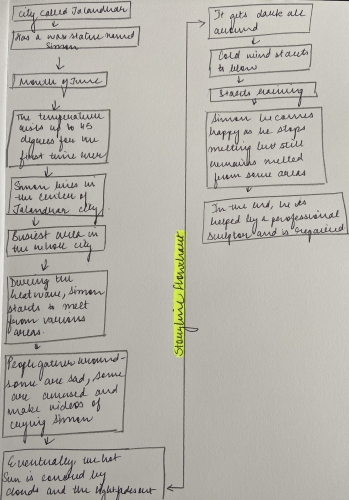 City called Jalandhar
Has a wax statue named
Simon
Month of June
The temperature
rises up to 45
degrees for the
first time ever
Simon lives in
the center of
Jalandhar city.
Busiest area in
the whole city
During the
heatwave, Simon
starts to melt
from various
areas.
People gather around-
some are sad, some
are amused and
make videos of
crying Simon
Eventually, the hot
Sun is covered by
clouds and the light
Storyline Flowchart
It gets dark all
around
Cold wind starts
to blow
Starts raining
Simon becomes
happy as he stops
melting but still
remains melted
from some areas
In the end, he is
helped by a professional
sculptor and is repaired